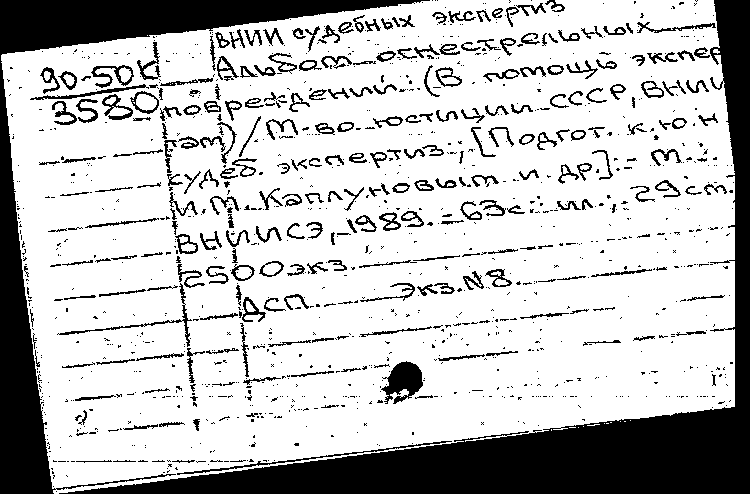 ВНИИ судебных экспертиз
90-50К Альбом огнестрельных
3580 повреждений: (В помощь экспер
там) / М-во юстиции СССР, ВНИИ
судеб. экспертиз; [Подгот. к.ю.н
И.М. Каплуновым и др.]. - М.:
ВНИИСЭ, 1989. - 63с.: ил.; 29см.
2500экз.
ДСП. Экз.N8.